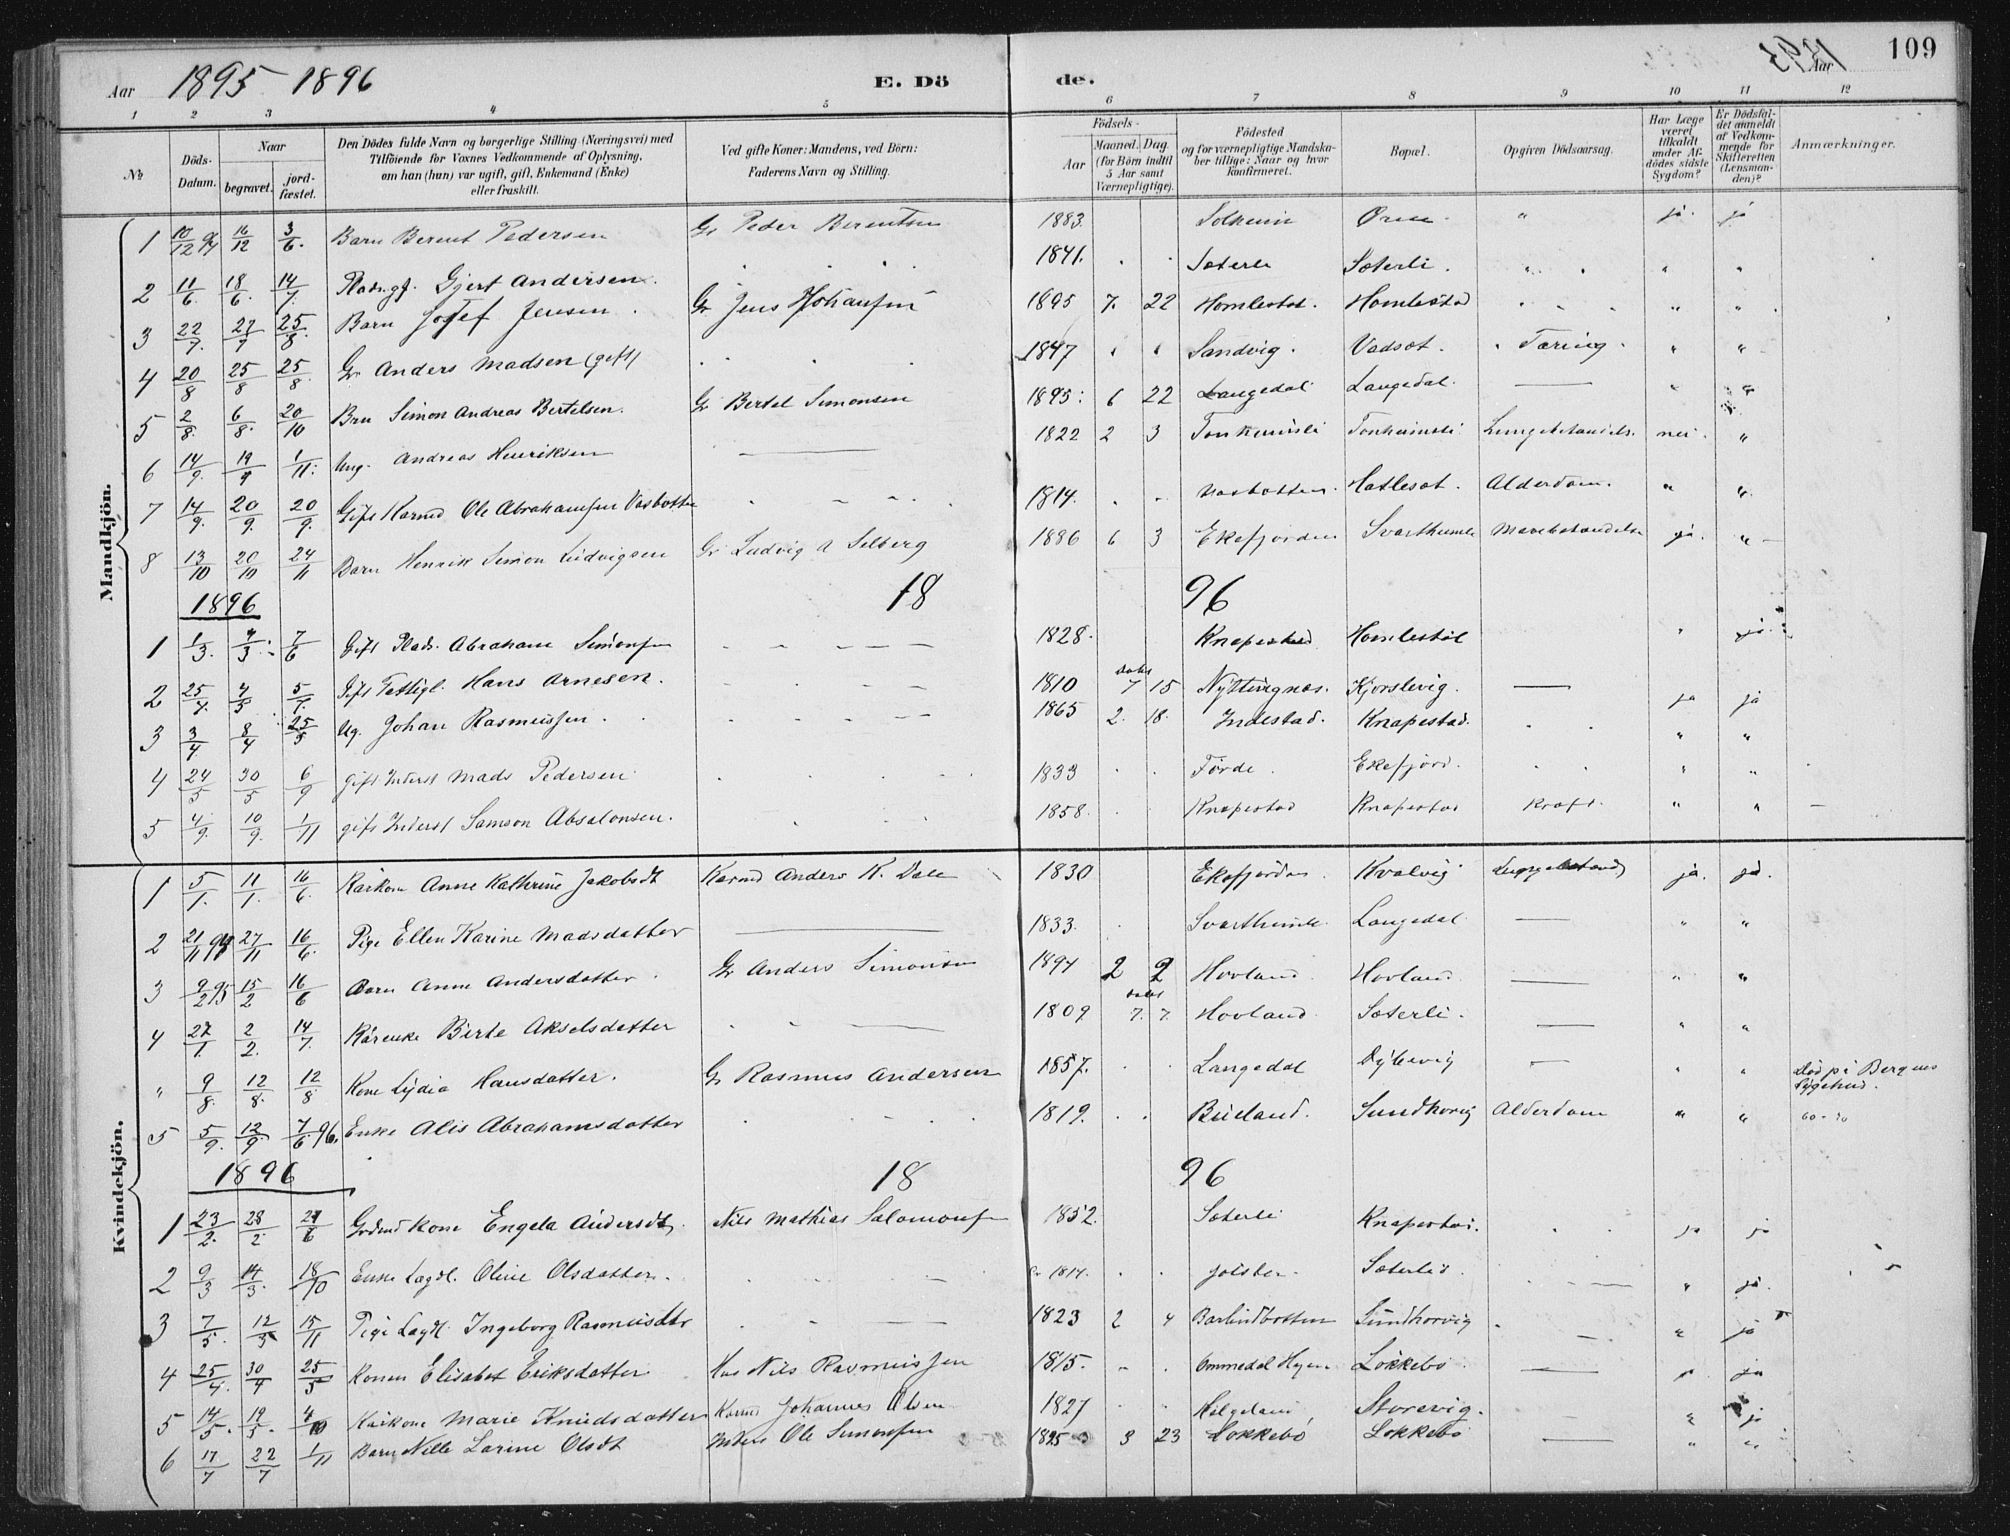 Aar 1895 1896 E. Döde. 1895 Aar 109
1 2 3 4 5 6 7 8 9 10 11 12
No Döds-Datum. Naar begravet. jord-fæstet. Den Dödes fulde Navn og borgerlige Stilling (Næringsvei) med Tilföiende for Voxnes Vedkommende af Oplysning, om han (hun) var ugift, gift, Enkemand (Enke) eller fraskilt. Ved gifte Koner: Mandens, ved Börn: Faderens Navn og Stilling. Födsels- Aar Maaned. Dag. (for Börn indtil 5 Aar samt Værnepligtige). Födested og for værnepligtige Mandskaber tillige: Naar og hvor konfirmeret. Bopæl. Opgiven Dödsaarsag. Har Læge været tilkaldt under Afdödes sidste Sygdom? Er Dödsfaldet anmeldt af Vedkommende for Skifteretten (Lænsmanden)? Anmærkninger.
Mandkjön.
1 10/12 94 16/12 3/6. Barn Berent Pedersen Gr Peder Berentsen 1883. Solheim Ørin " ja. ja
2 11/6. 18/6. 14/7. Pladsgf. Gjert Andersen. 1841. Sæterli Sæterli. " "
3 22/7. 27/7 25/8. Barn Josef Jensen Gr Jens Johansen 1895 7. 22 Homlestøl. Homlestød " "
4 20/8 25/8 25/8. Gr Anders Madsen (gift) 1847 " " Sandvig. Vadsøt. Tæring. " "
5 2/8. 6/8. 20/10 Brn Simon Andreas Bertelsen. Gr Bertel Simonsen 1895: 6 22 Langedal Langedal. — " "
6 14/9. 19/9 1/11: Ung. Andreas Henriksen — 1822 2 3 Tonheimsli Tonheimsli Lungebetændels. nei. "
7 14/9. 20/9. 20/9. Gift Kårmd Ole Abrahamsen Vasbotten 1814. Vasbotten. Hatlesøt. Alderdom. " "
8 13/10 20/10 24/11 Barn Henrik Simon Ludvigsen Gr Ludvig A Solberg 1886 6 3 Ekefjorden Svarthumle Mavebetændelse ja. "
1896 18 96
1 1/3. 7/3. 7/6 Gift Plads. Abraham Simonsen 1828. Knapestad Homlestøl " ja.
2 25/4. 4/5 5/7. Gift Fattigl. Hans Arnesen. 1810 Døbt 7 15 Nyttingnæs. Kjorslevig. — ja ja
3 3/4 8/4 25/5 Ug. Johan Rasmussen. 1865 2. 18. Indestad. Knapestad. " "
4 24/5 30/5 6/9 gift Inderst Mads Pedersen 1833 Førde. Ekefjord. " "
5 4/9. 10/9. 1/11 gift Inderst Samson Absalonsen. 1858. Knapestad Knapestad Kræft. " "
Kvindekjön.
1 5/1. 11/1. 16/6. Kårkone Anne Kathrine Jakobsdt Kårmd Anders K. Dale 1830 Ekefjorden Kvalvig ja. ja.
2 21/11 94 27/11 16/6. Pige Ellen Karine Madsdatter — 1833. Svarthumle. Langedal — " "
3 9/2 95 15/2 16/6 Barn Anne Andersdatter. Gr Anders Simonsen 1894 2 2 Hovland Hovland — " "
4 27/1. 2/2. 14/7. Kårenke Birte Akselsdatter 1809 døbt 7. 7. Hovland Sæterli. — " "
" 9/8. 12/8. 12/8 Kone Lydia Hansdatter. Gr Rasmus Andersen 1857. Langedal Dybevig — " " Død på Bergens Sygehus.
5 5/9. 12/9. 7/6 96. Enke Alis Abrahamsdatter 1819. Bueland. Sundhovig Alderdom " "
1896 18 96
1 23/2. 28/2 Grdmd kone Engela Andersdt. Nils Mathias Salomonsen 1852. Sæterli Knapestad. ja ja
2 9/3 14/3. 18/10 Enke Lægdl. Oline Olsdatter. 1814. Jølster. Sæterlid. — " ja.
3 7/5. 12/5 15/11 Pige Lægdl. Ingeborg Rasmusdtr 1823 2 4 Barlindbotten Sundhovvig — " ja
4 25/4. 30/4 25/5 Konen Elisabet Eriksdatter Nils Rasmussen 1815. Ommedal Hyen Løkkebø. — " ja
5 14/5. 19/5. 4/10 Kårkone Marie Knudsdatter Kårmd Johannes Olsen 1827 Helgeland Storevig. " ja
6 17/7 22/7 1/11 Barn Nille Larine Olsdt Inders Ole Simonsen 1895 3 23 Løkkebø Løkkebø — " "